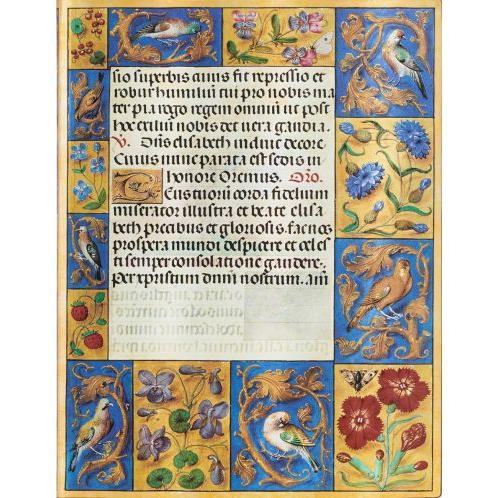 sio superbis cuius fit repressio et
robur humilium tui pro nobis ma
ter pia rogo regem omniū ut post
hoc exiliū nobis det vera gaudia.
V. Dn̄s elisabeth induit decore.
Cuius nunc parata est sedis in
honore Oremus. Oro.
Deus tuorū corda fidelium
miserator illustra et beate elisa
beth precibus et gloriosis fac nos
prospera mundi despicere et celes
ti semper consolatione gaudere.
Per xpistum dnm nostrum. am